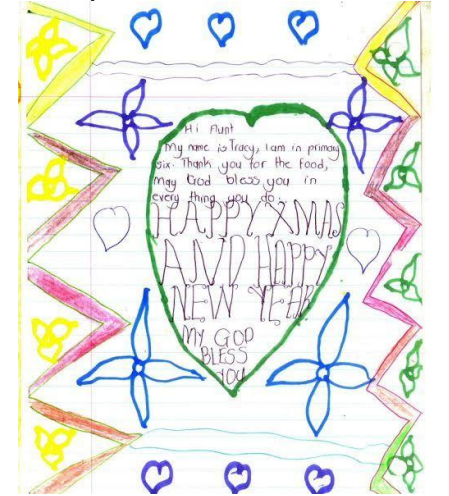 Hi Aunt
My name is Tracy, I am in primary
six. Thank you for the food,
may God bless you in
every thing you do.
HAPPY XMAS
AND HAPPY
NEW YEAR
MY GOD
BLESS
YOU